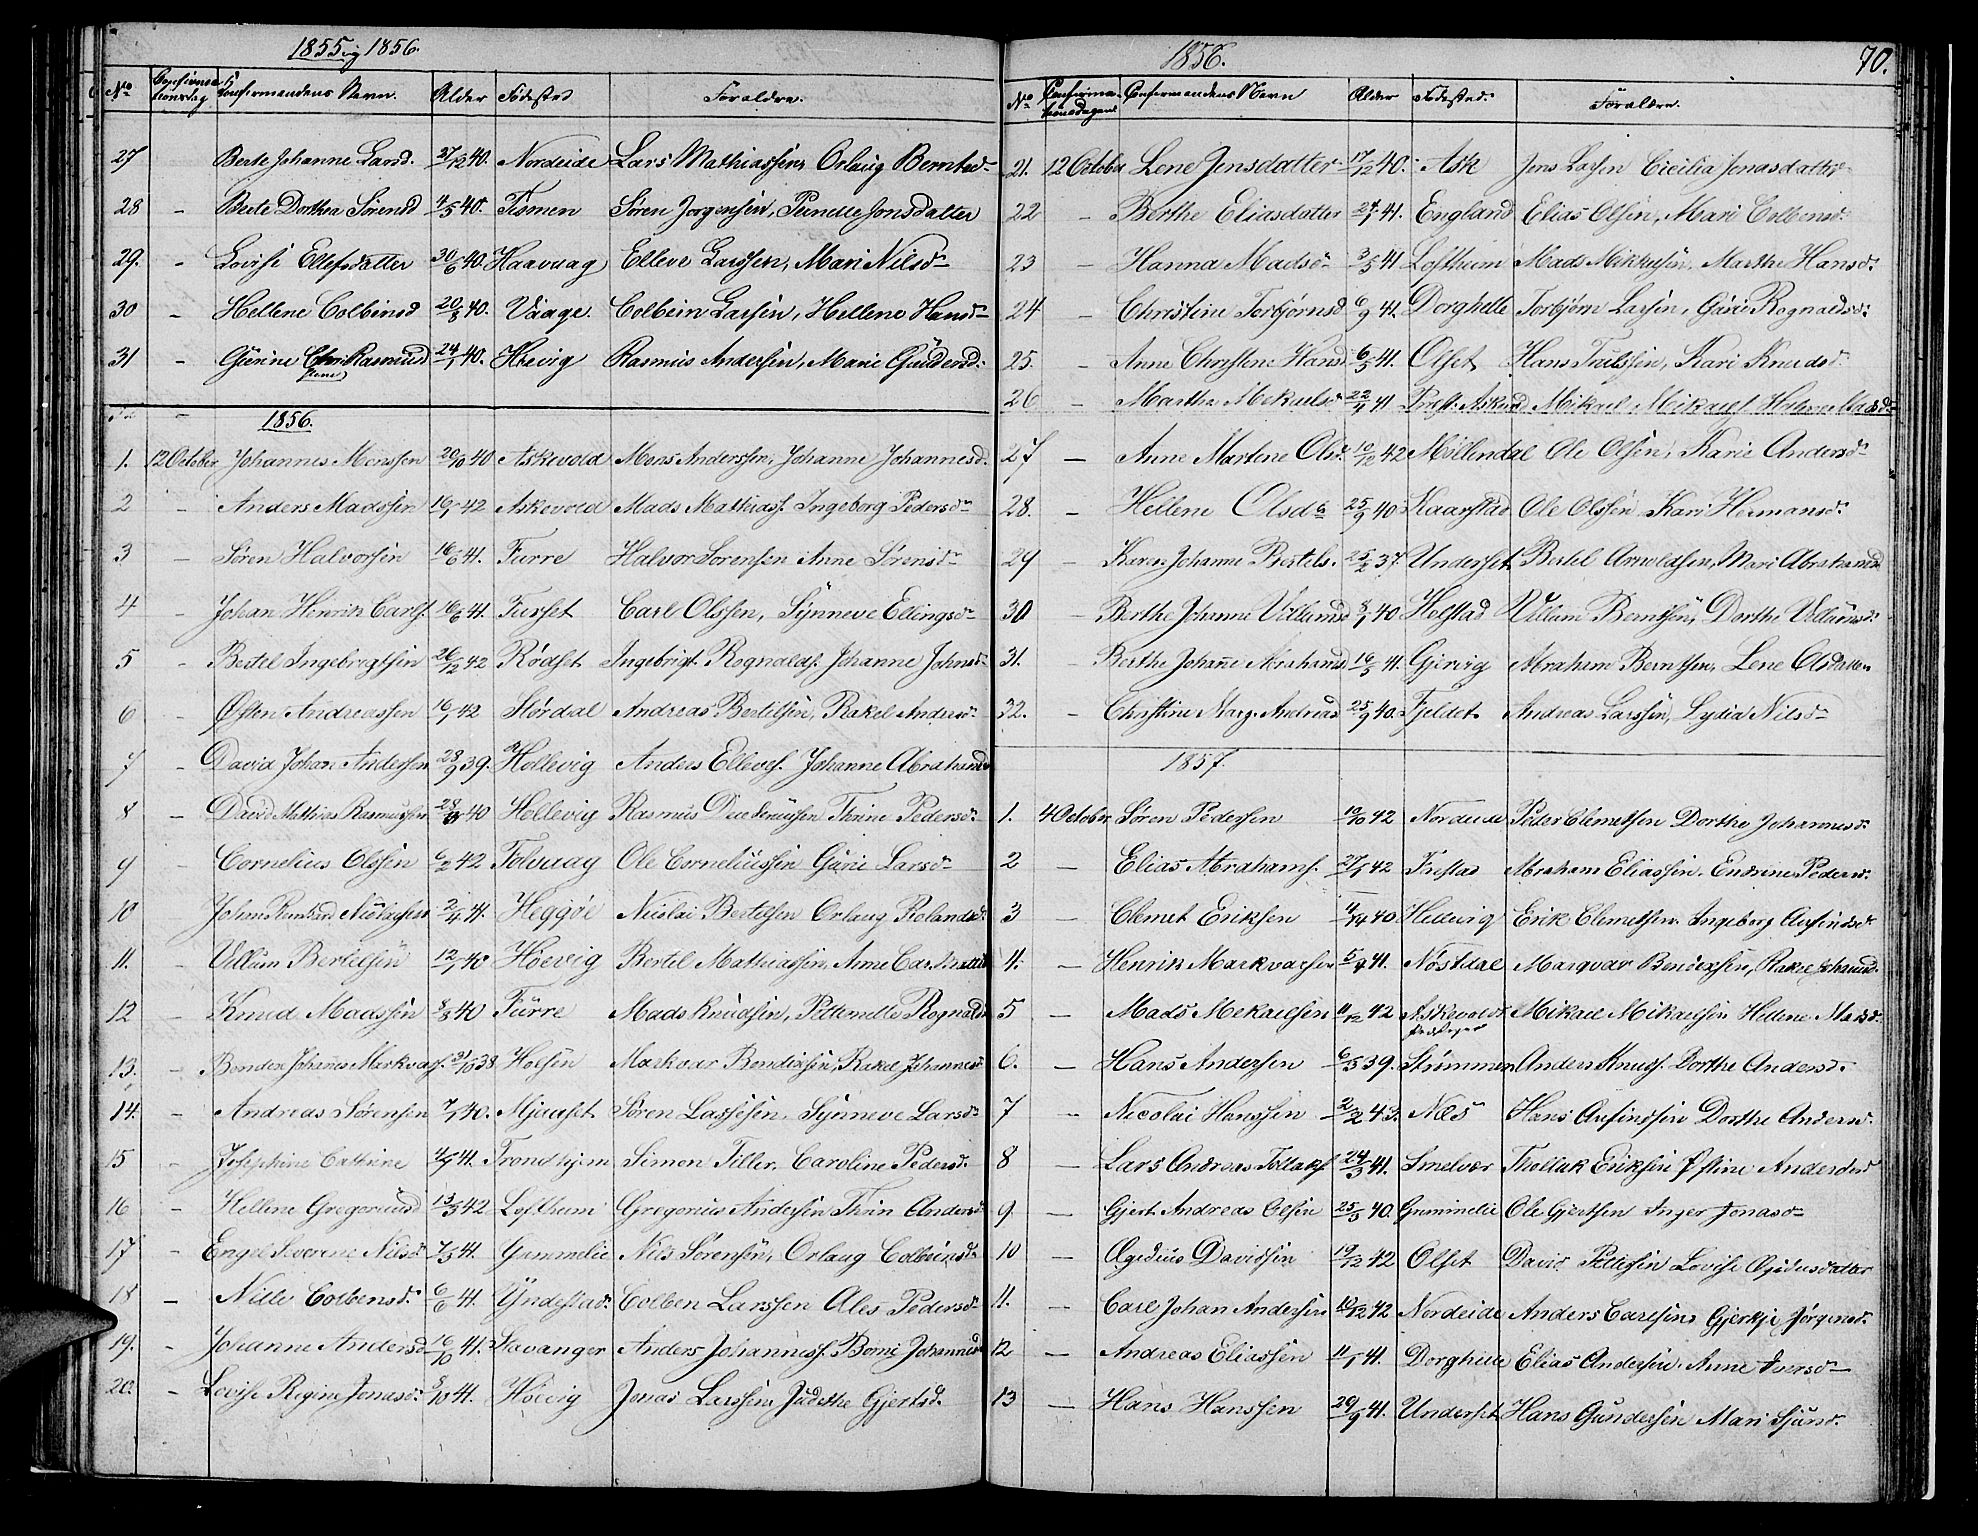 1855 og 1856.
No Confirmationsdag Confirmandens Navn. Alder Fødested Forældre.
27 Berte Johanne Larsd. 27/12 40. Nordeide Lars Mathiassen, Orlaug Berntsd.
28 - Berte Dorthea Sørensd 4/5 40. Tismen Søren Jørgensen, Pernelle Jonsdatter
29. - Lovise Ellefsdatter 30/6 40. Haavaag Elleve Larssen, Mari Nilsd.
30 - Hellene Colbinsd 20/8 40. Vaage Colbein Larsen, Hellene Hansd.
31 - Gjørine Rasmusd 24/1 40. Høevig Rasmus Andersen, Marie Guddersd.
1856.
1. 12 October Johannes Monssen 20/10 40 Askevold Mons Anderssen, Johanne Johannesd.
2 - Anders Madssen 16/1 42 Askevold Mads Mathiass. Ingeborg Pedersd.
3 - Søren Halvorsen 16/6 41. Furre Halvor Sørensen Anne Sørensd.
4 - Johan Henrik Carls. 16/6 41. Furset Carl Olssen, Synneve Ellingsd.
5 - Bertel Ingebrigtsen 26/12 42 Rødset Ingebrigt Rognalds. Johanne Johnsd.
6 - Østen Andreassen 16/1 42 Stordal Andreas Bertelsen, Rakel Andersd.
7 - David Johan Anderssen 23/9 39. Hellevig Anders Elleves. Johanne Abrahamsd
8 - David Mathias Rasmussen 28/ 40 Hellevig Rasmus Diederiussen Thrine Pedersd.
9 - Cornelius Olssen 6/2 42 Folvaag Ole Corneliussen Guri Larsd.
10 - Johan 2/4 41. Heggøe Nicolai Bertelsen Orlaug Rolandsd.
11. - Villum Bertelsen 12/1 40 Høevig Bertel Mathiassen, Anne
12 - Knud Madssen 8/8 40 Furre Mads Knudsen, Petternelle Rognaldsd
13. - Bendex Johannes Markvars. 31/10 38 Holsen Markvar Bendixsen, Rakel Johannesd
14. - Andreas Sørensen 7/1 40. Mjaaset Søren Lassesen, Synneve Larsd.
15 - Josephine Cathrine 4/9 41. Trondhjem Simon Tiller, Caroline Pedersd.
16 - Hellene Gregoriusd 13/5 42 Loftheim Gregorius Andersen Thrin Andersd.
17 - Engel Severine Nilsd. 7/5 41. Gummelie Nils Sørensen, Orlaug Colbeinsd.
18 - Nille Colbensd. 6/6 41. Yndestad. Colben Larssen Ales Pedersd.
19. - Johanne Andersd 16/10 41. Stavanger Anders Johanness. Borni Johannesd
20. - Lovise Regine Jonasd. 3/10 41. Høevig Jonas Larssen, Judethe Gjertsd.
1856. 70.
No Confirmationsdagene Confirmandens Navn Alder Fødested. Forældre.
21. 12 October Lene Jensdatter 17/12 40. Ask Jens Lassen Cicilia Jonasdatter
22 - Berthe Eliasdatter 24/1 41. England Elias Olsen, Mari Colbensd.
23 - Hanna Madsd. 3/5 41 Loftheim Mads Mikkelsen, Marthe Hansd.
24 - Christine Torbjørnsd 6/9 41. Dorghelle Torbjørn Lassen, Guri Rognaldsd.
25. - Anne Christene Hansd 6/5 41. Olset Hans Troilssen, Kari Knudsd.
26 - Marthe Mekaelsd. 22/4 41 Præst. Askevold Mikael Mikaels. Helene Madsd.
27 - Anne Martene Olsd. 10/12 42 Møllendal Ole Olsen, Karie Andersd.
28. - Hellene Olsda 25/9 40 Kaarstad Ole Olssen, Kari Hermansd.
29 - Karen Johanne Bertels. 25/2 37. Underset Bertel Arnoldsen, Mari Abrahamsd
30 - Berthe Johanne Villumsd 8/1 40 Helstad Villum Berntsen, Dorthe Villumsd.
31. - Berthe Johanne Abrahamsd 16/5 41. Gjervig Abraham Berntsen, Lene Olsdatter
32. - Christine Marg. Andreasd 25/9 40. Fjeldet Andreas Larssen, Lydia Nilsd.
1857.
1. 4 October. Søren Pedersen 10/10 42 Nordeide Peder Clemetsen Dorthe Johannesd.
2 - Elias Abrahams. 27/1 42 Frestad Abraham Eliassen. Endrine Pedersd.
3 - Clemet Eriksen 40 Hellevig Erik Clemetsen. Ingeborg Ausindsd.
4. - Henrik Markvarsen 5/4 41. Nøstdal Marqvar Bendexsen, Rakel Johannesd.
5 - Mads Mekaelsen 11/12 42 Askevold Præstegaard Mikael Mikaelsen Hellene Madsd.
6. - Hans Andersen 6/5 39. Strømmen Anders Knuds. Dorthe Andersd.
7 - Nicolai Hanssen 2/2 43. Næs Hans Ausindsen Dorthe Andersd.
8 - Lars Andreas Tollaks. 24/5 41. Smelvær Thollak Eriksen Østine Andersd
9. - Gjert Andreas Olsen 25/5 40. Grimmelie Ole Gjertsen Inger Jonasd.
10 - Ægidius Davidsen 19/12 42 Olset David Pettersen Lovise Ægidiusdatter
11. - Carl Johan Andersen 10/12 42 Nordeide Anders Carelsens Gjerkje Jørgensd.
12 - Andreas Eliassen 11/1 41. Dorghelle Elias Andersen. Anne Iversd.
13 - Hans Hanssen 29/9 41. Underset Hans Gundersen Mari Sjursd.